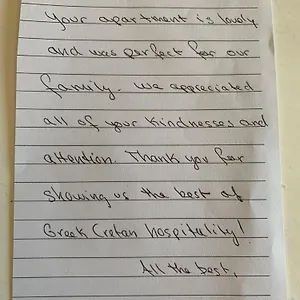 Your apartment is lovely
and was perfect for our
family. We appreciated
all of your kindnesses and
attention. Thank you for
showing us the best of
Greek Cretan hospitality!
All the best,